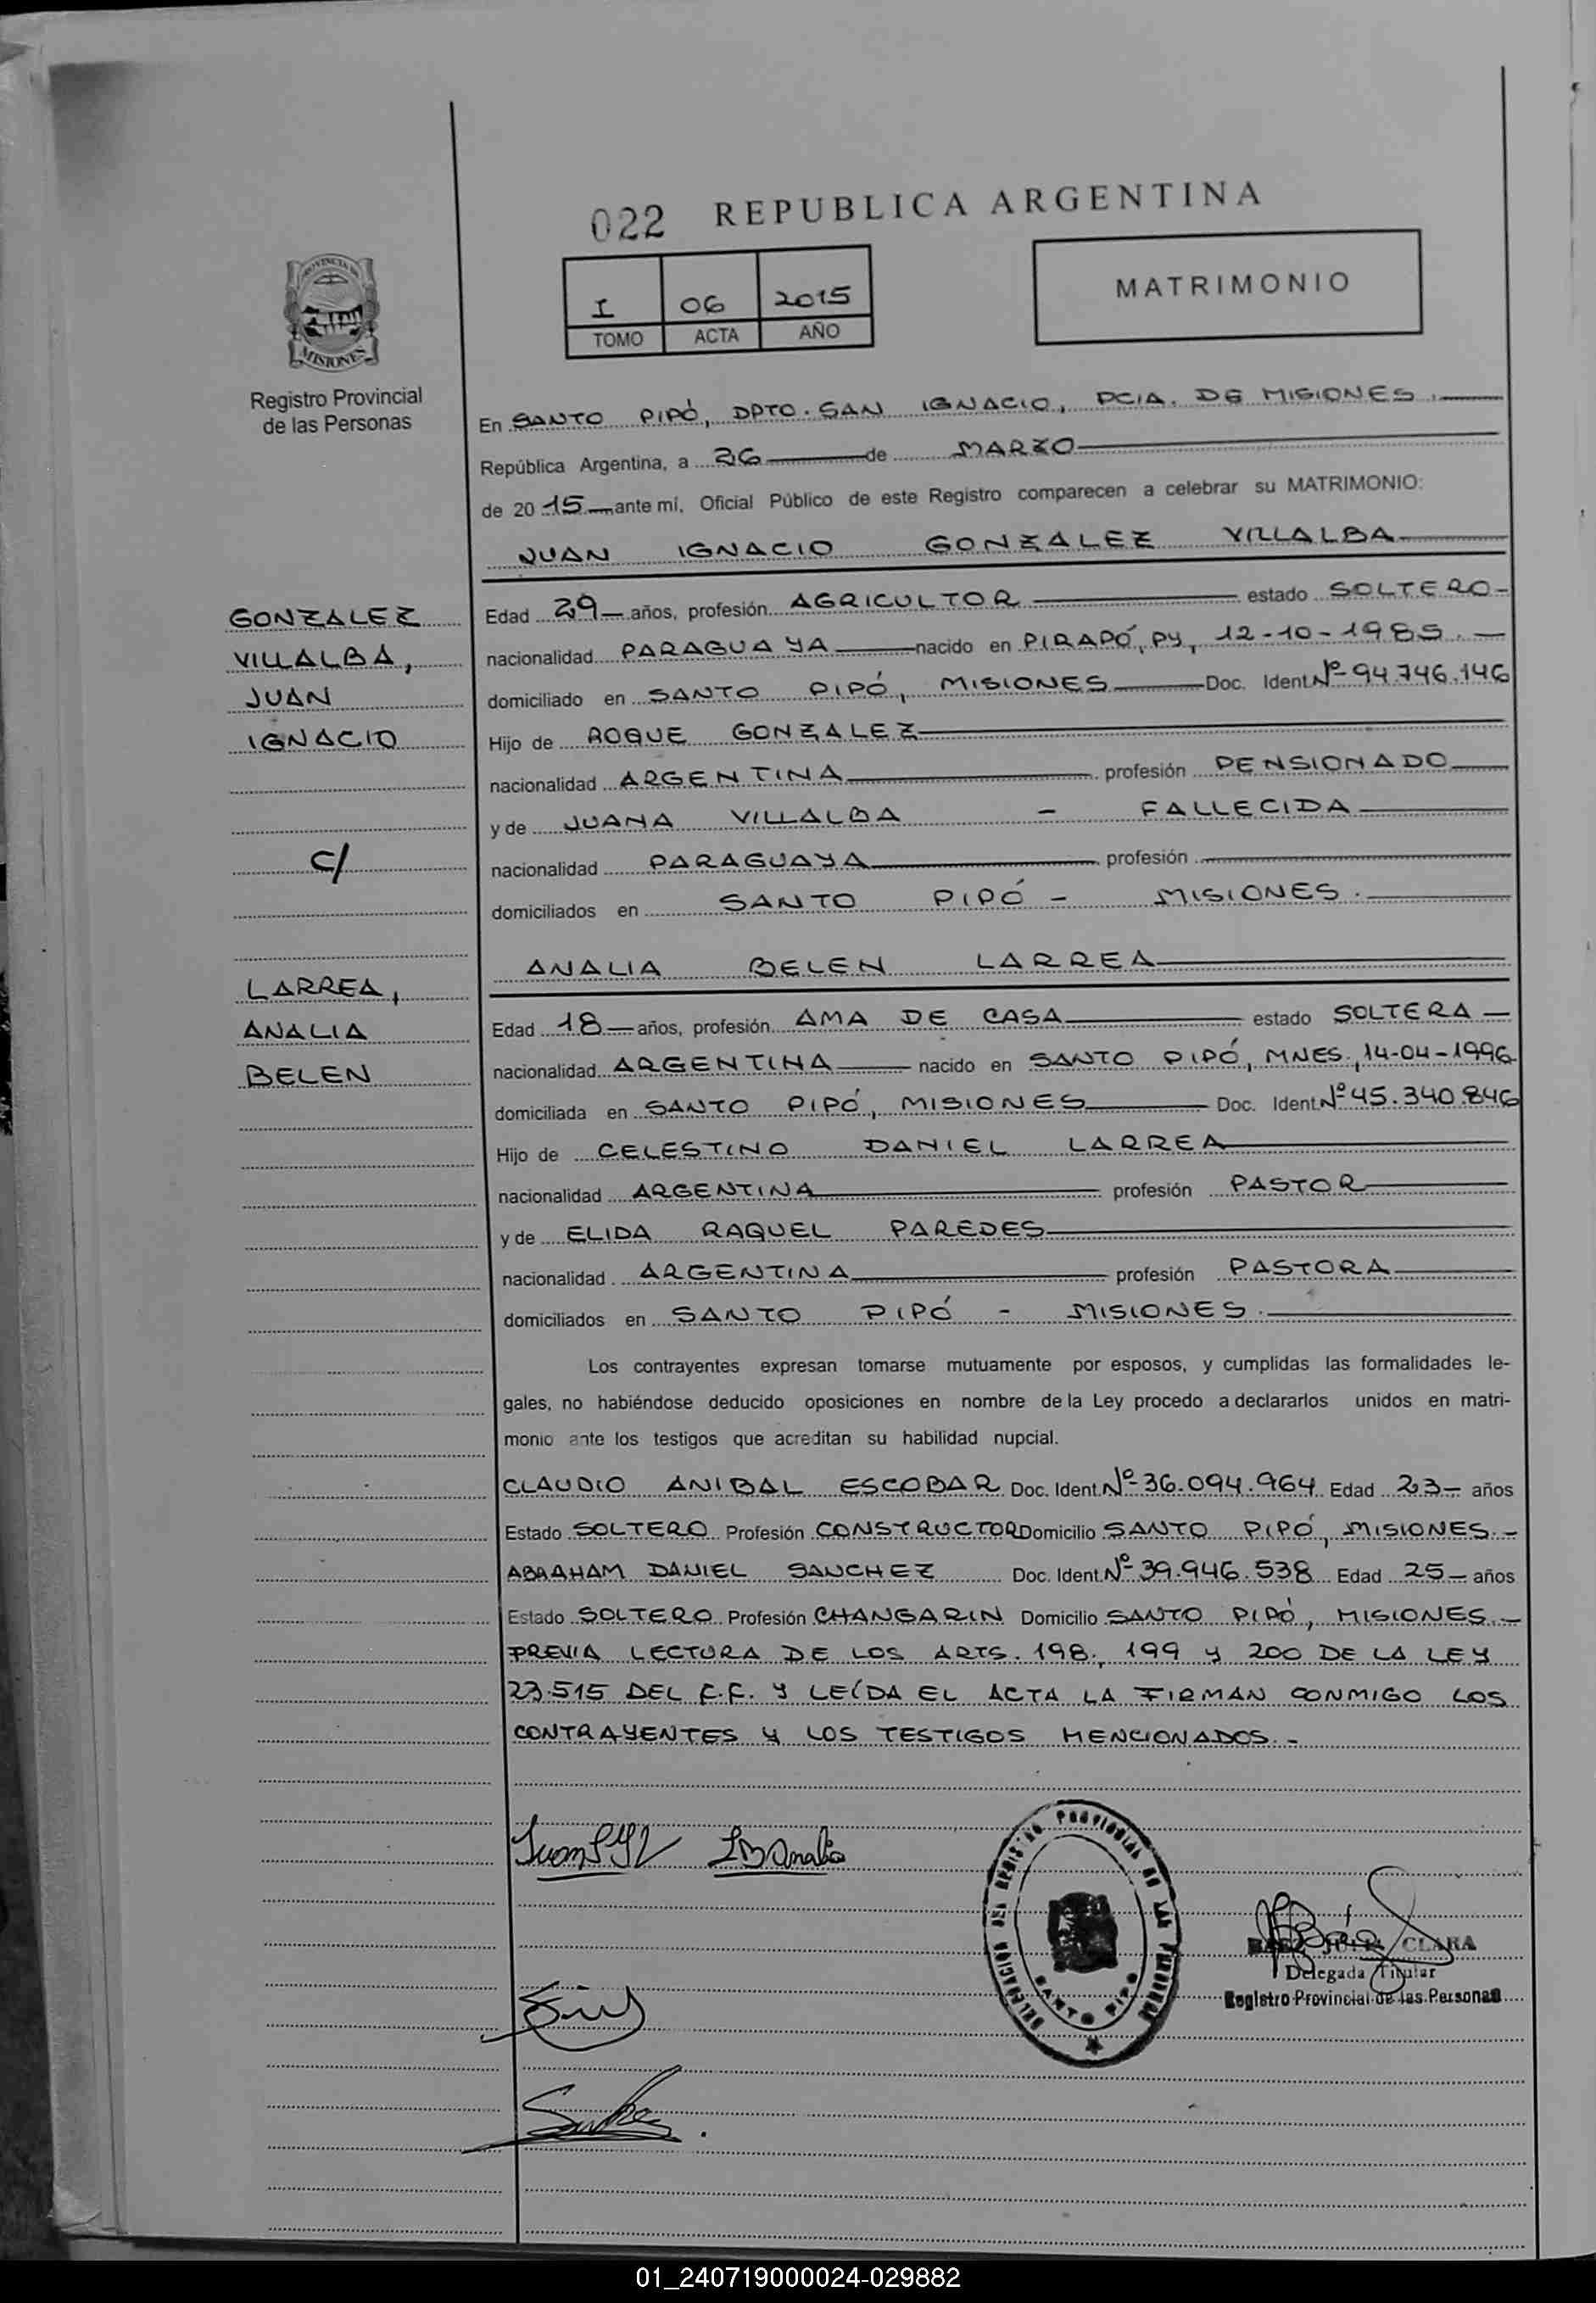 022 REPUBLICA ARGENTINA
I 06 2015
TOMO ACTA AÑO
MATRIMONIO
PROVINCIA DE
MISIONES
Registro Provincial
de las Personas
En SANTO PIPÓ, DPTO. SAN IGNACIO, PCIA. DE MISIONES.
República Argentina, a 26 de MARZO
de 2015 ante mí, Oficial Público de este Registro comparecen a celebrar su MATRIMONIO:
JUAN IGNACIO GONZALEZ VILLALBA
GONZALEZ
VILLALBA,
JUAN
IGNACIO
C/
LARREA,
ANALIA
BELEN
Edad 29 años, profesión AGRICULTOR estado SOLTERO-
nacionalidad PARAGUAYA nacido en PIRAPÓ, PY, 12-10-1985.
domiciliado en SANTO PIPÓ, MISIONES Doc. Ident. Nº 94.746.146
Hijo de ROQUE GONZALEZ
nacionalidad ARGENTINA profesión PENSIONADO
y de JUANA VILLALBA - FALLECIDA
nacionalidad PARAGUAYA profesión
domiciliados en SANTO PIPÓ - MISIONES.
ANALIA BELEN LARREA
Edad 18 años, profesión AMA DE CASA estado SOLTERA
nacionalidad ARGENTINA nacido en SANTO PIPÓ, MNES., 14-04-1996
domiciliada en SANTO PIPÓ, MISIONES Doc. Ident. Nº 45.340.846
Hijo de CELESTINO DANIEL LARREA
nacionalidad ARGENTINA profesión PASTOR
y de ELIDA RAQUEL PAREDES
nacionalidad ARGENTINA profesión PASTORA
domiciliados en SANTO PIPÓ - MISIONES.
Los contrayentes expresan tomarse mutuamente por esposos, y cumplidas las formalidades le-
gales, no habiéndose deducido oposiciones en nombre de la Ley procedo a declararlos unidos en matri-
monio ante los testigos que acreditan su habilidad nupcial.
CLAUDIO ANIBAL ESCOBAR Doc. Ident. Nº 36.094.964 Edad 23- años
Estado SOLTERO Profesión CONSTRUCTOR Domicilio SANTO PIPÓ, MISIONES.-
ABRAHAM DANIEL SANCHEZ Doc. Ident. Nº 39.946.538 Edad 25- años
Estado SOLTERO Profesión CHANGARIN Domicilio SANTO PIPÓ, MISIONES.-
PREVIA LECTURA DE LOS ARTS. 198, 199 Y 200 DE LA LEY
23.515 DEL C.C. Y LEÍDA EL ACTA LA FIRMAN CONMIGO LOS
CONTRAYENTES Y LOS TESTIGOS MENCIONADOS.-
DELEGACION DEL REGISTRO PROVINCIAL DE LAS PERSONAS
SANTO PIPO
BAEZ JULIA CLARA
Delegada Titular
Registro Provincial de las Personas
01_240719000024-029882